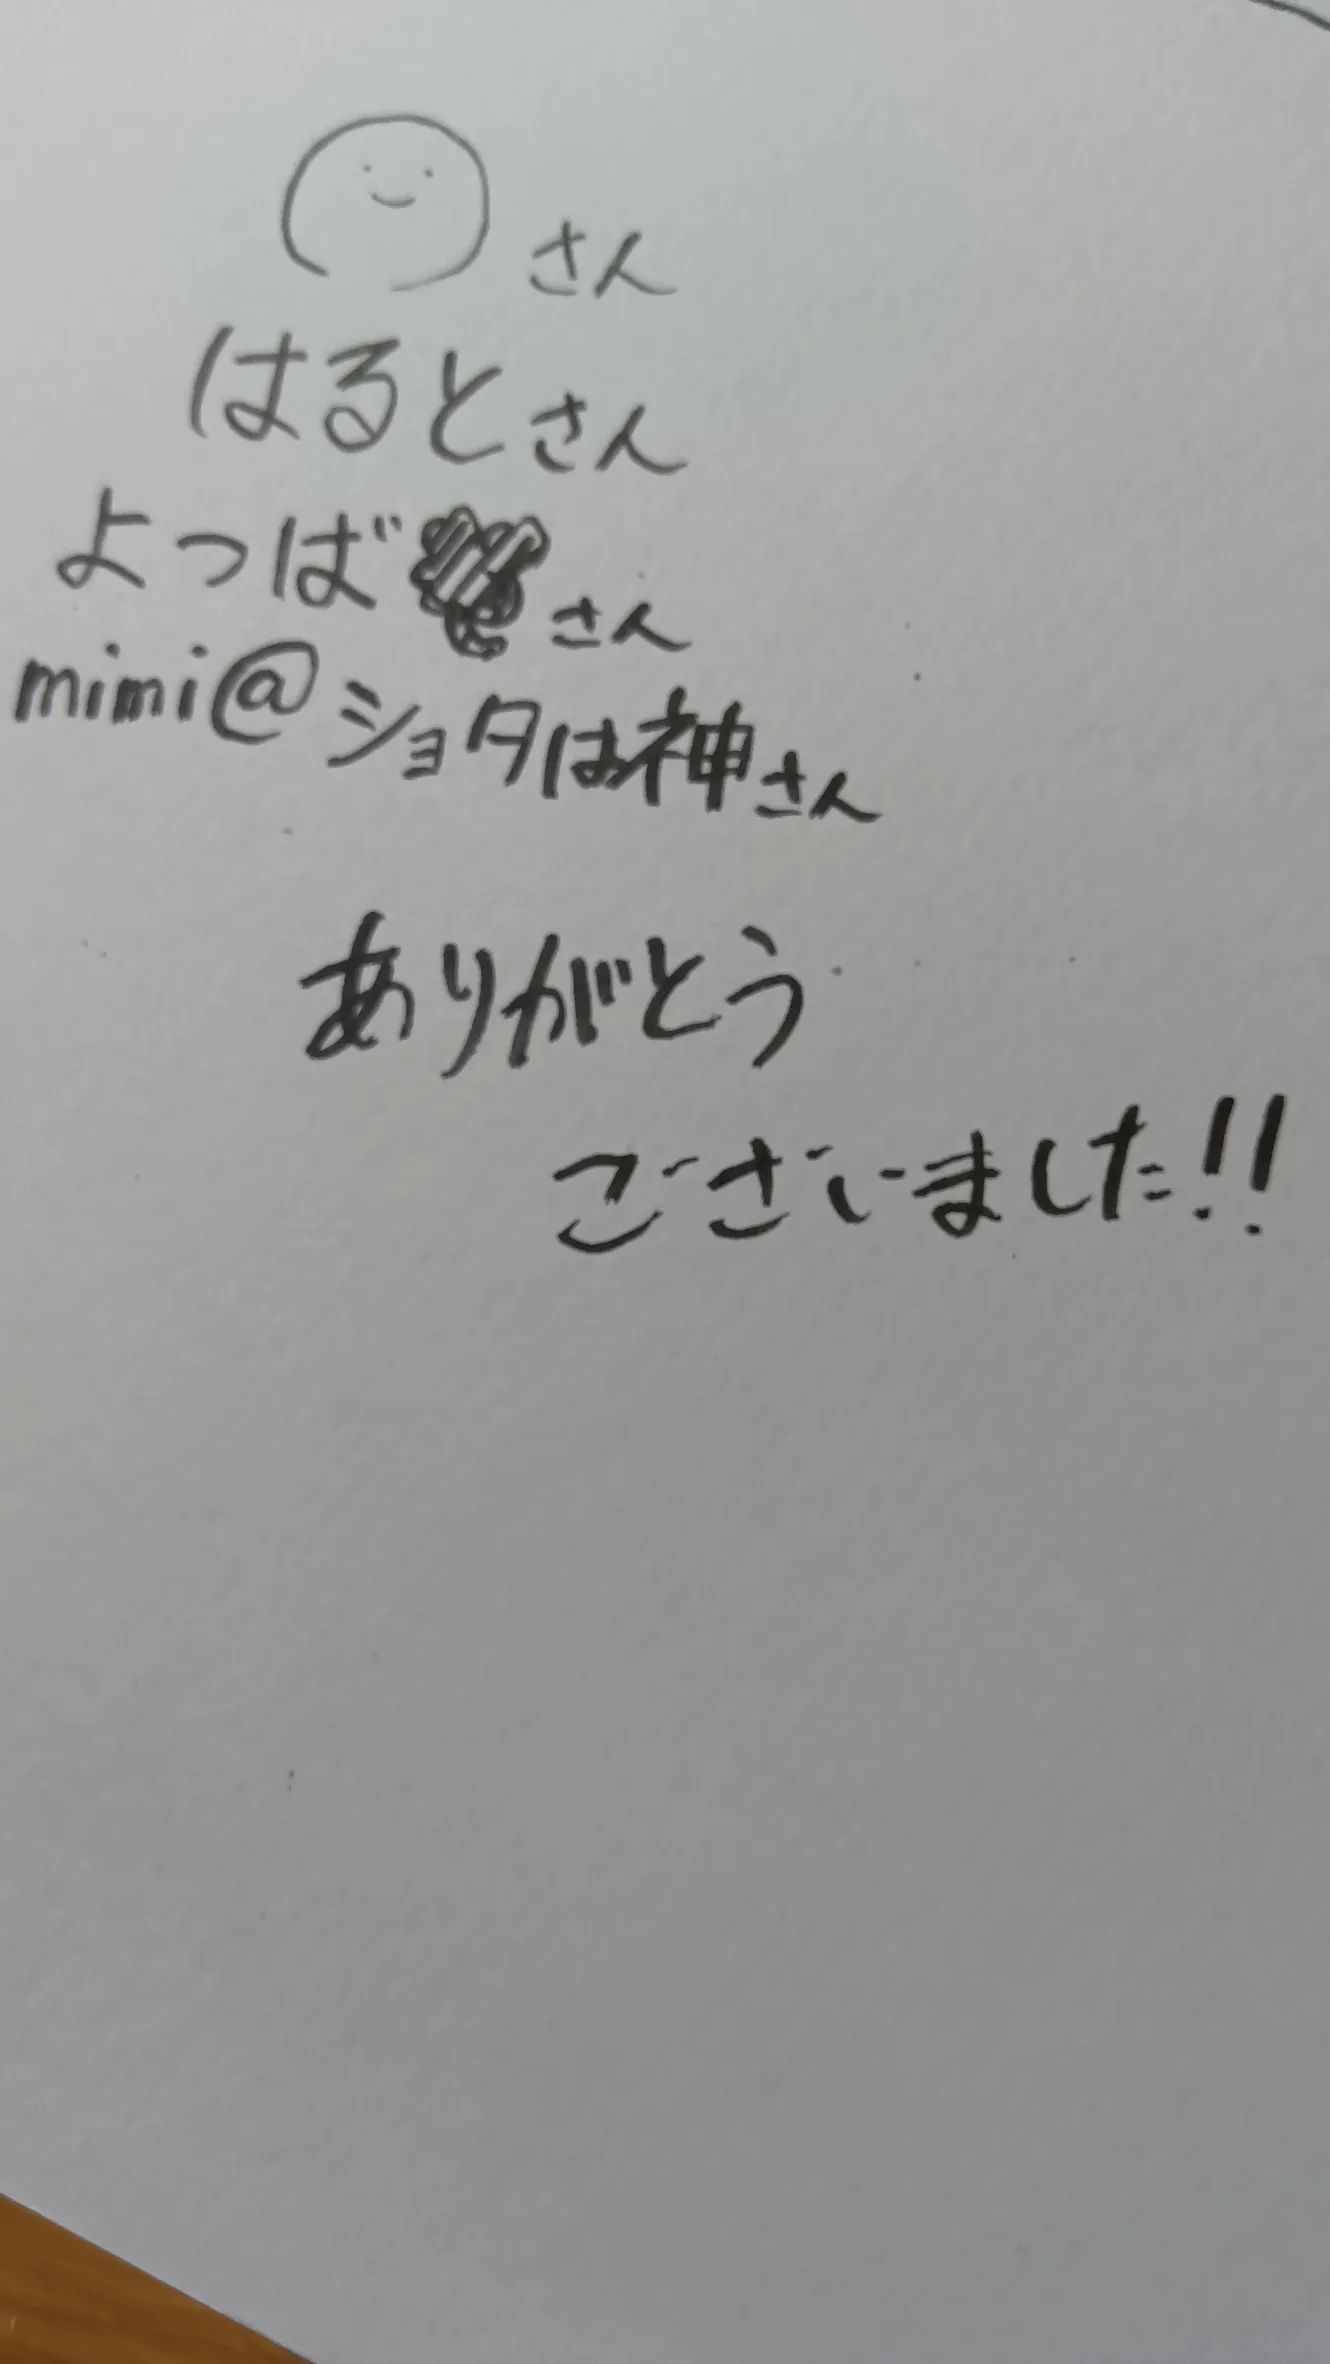 さん
はるとさん
よつばさん
mimi@ショタは神さん
ありがとう
ございました!!